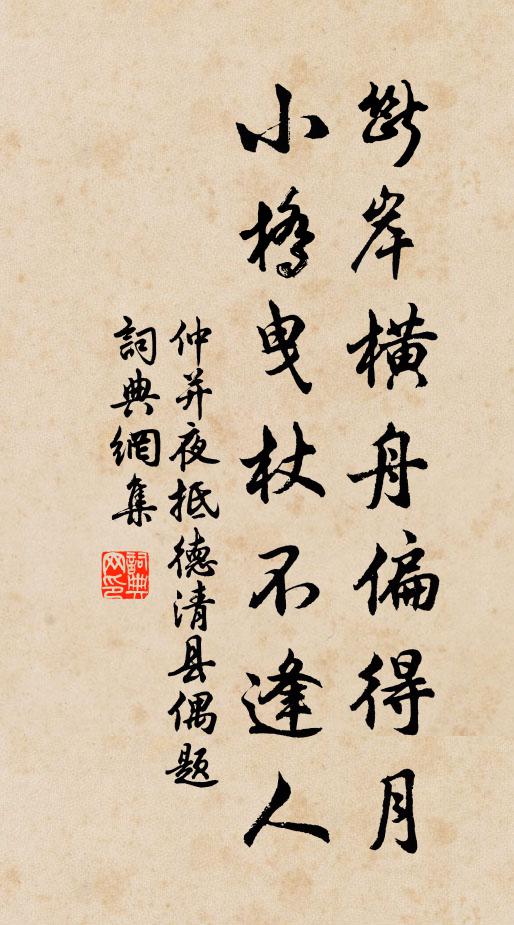 斷岸橫舟偏得月
小橋曳杖不逢人
仲并夜抵德清县偶题
詞典網集
詞典网印